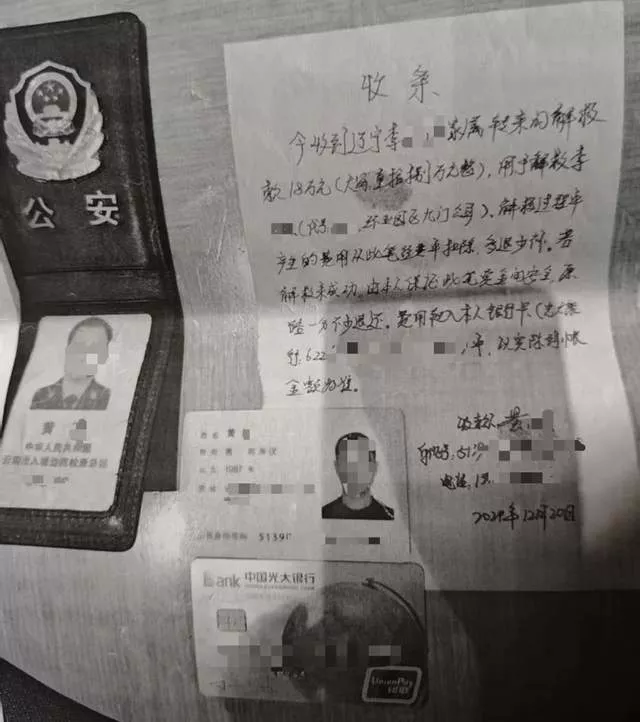 公安
黄
中华人民共和国
云南出入境边防检查总站
收条
今收到辽宁李 家属转来的解救
款18万元(大写:壹拾捌万元整),用于解救李
(代号 园区大门公司)。解救过程中
产生的费用从此笔经费中扣除,多退少补。若
解救未成功,由本人保证此笔资金的安全,原
路一分不少退还。费用转入本人银行卡(光大银
行,622 )中,以实际到账
金额为准。
收款人:黄
身份证号:
电话:1
2024年12月20日
姓名 黄
性别 男 民族 汉
出生 1987 年
住址
公民身份号码 5139
Bank 中国光大银行
UnionPay
银联